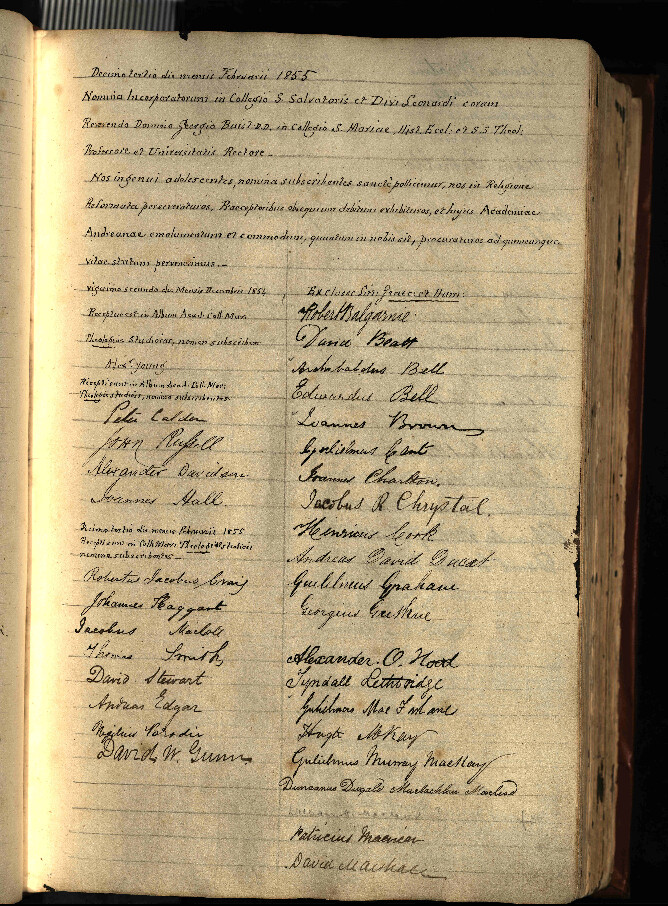 Decimo tertio die mensis Februarii 1855
Nomina Incorporatorum in Collegio S. Salvatoris et Divi Leonardi coram
Reverendo Domino Georgio Buist D.D. in Collegio S. Mariae, Hist. Eccl: et S.S. Theol:
Professore et Universitatis Rectore.
Nos ingenui adolescentes, nomina subscribentes sancte pollicemur, nos in Religione
Reformata perseveraturos, Praeceptoribus obsequium debitum exhibituros, et hujus Academiae
Andreanae emolumentum et commodum, quantum in nobis sit, procuraturos ad quemcunque
vitae statum pervenerimus.
Vigesimo secundo die Mensis Decembris 1854
Receptus est in Album Acad: Coll. Mar:
Theologiae Studiosus, nomen subscribens
Alexr. Young
Recepti sunt in Album Acad. Coll. Mar:
Theologiae studiosi, nomina subscribentes.
Peter Calder
John Russell
Alexander Davidson
Joannes Hall.
Decimo tertio die mensis Februarii 1855
Recepti sunt in Coll. Mar: Theologiae studiosi
nomina subscribentes
Robertus Jacobus Craig
Johannes Haggart
Jacobus
Thomas Smith
David Stewart
Andreas Edgar
David W. Gunn
Ex classe Ling. Graec. et Hum:
Robert Balgarnie
David Beatt
Archibaldus Bell
Edwardus Bell
Joannes Brown
Gulielmus Cant
Joannes Charlton.
Jacobus R Chrystal.
Henricus Cook
Andreas David Ducat
Guilielmus Grahame
Georgius Guthrie
Alexander O. Hood
Tyndall Lethbridge
Gulielmus MacFarlane
Hugh McKay
Gulielmus Murray MacKay
Duncanus Dugald Maclachlan Macleod
Patricius Macnear
David Marshall